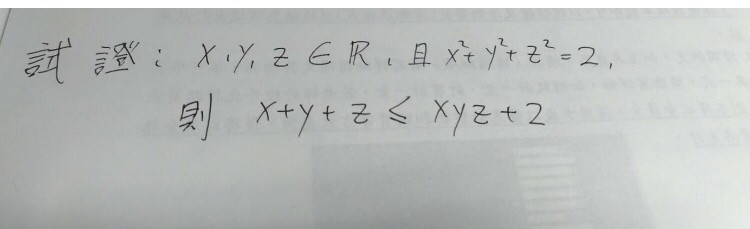 試證：x,y,z∈ℝ，且 x²+y²+z²=2,
則 x+y+z ≤ xyz+2